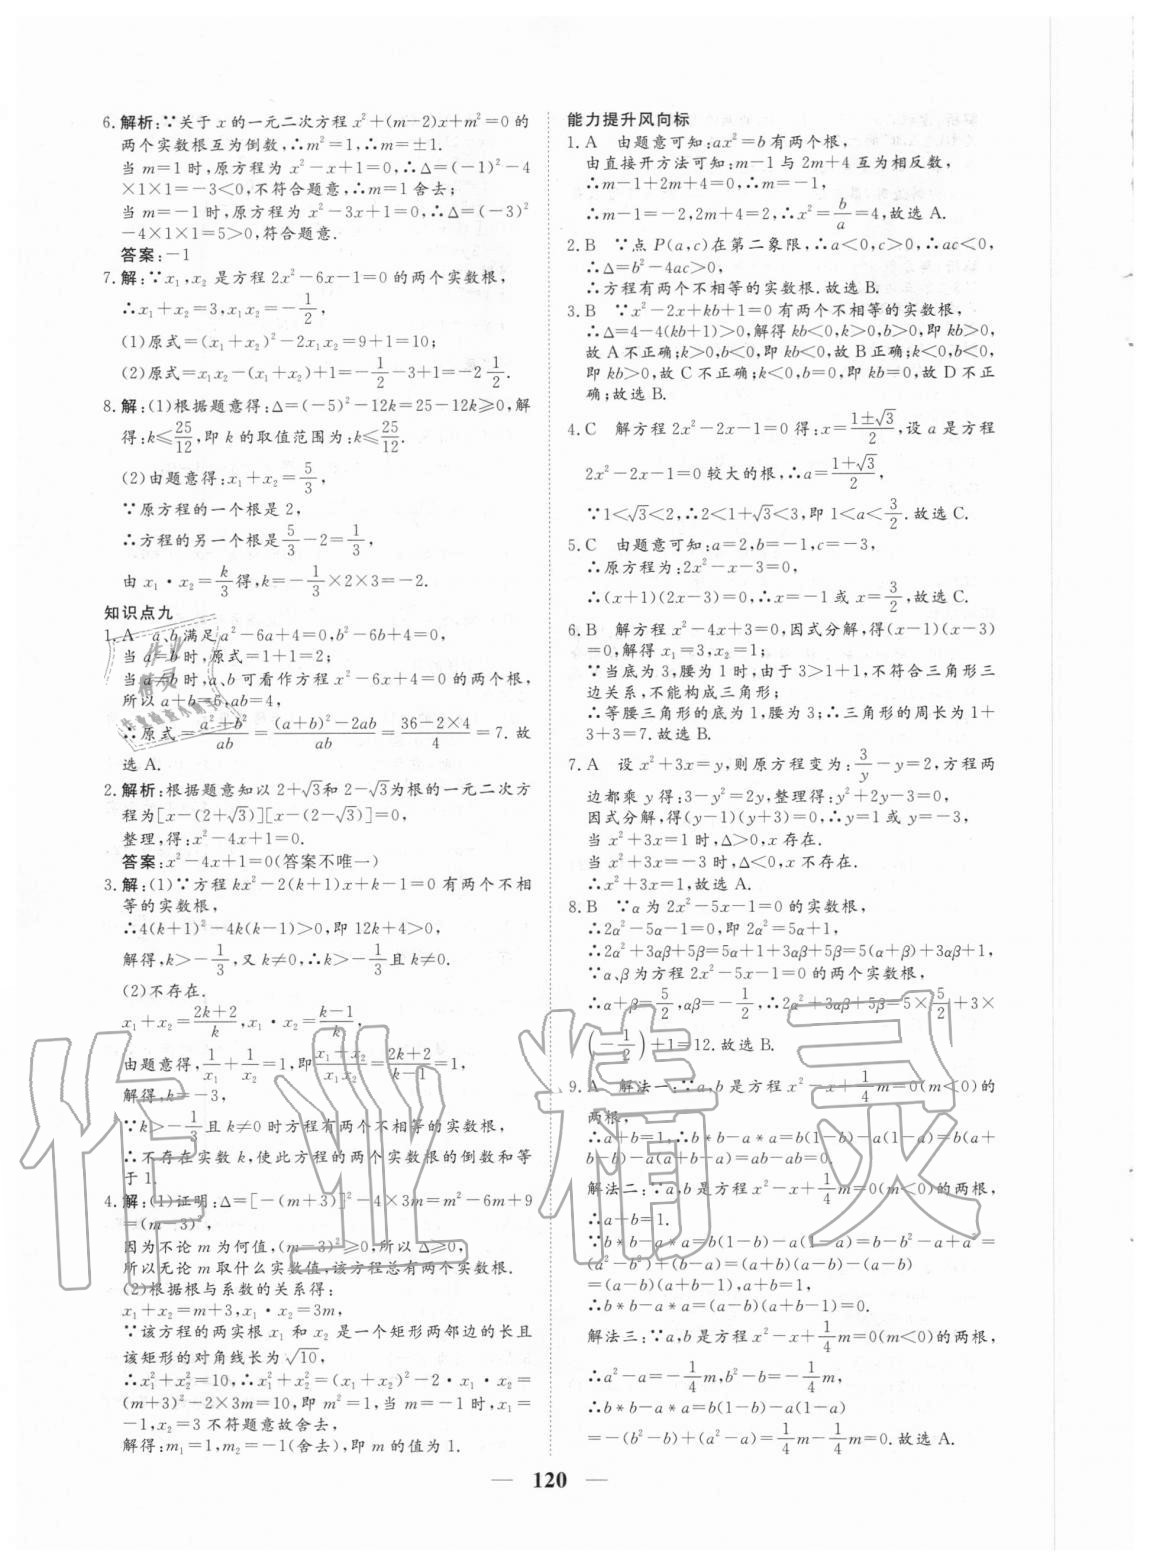 6. 解析:∵关于 x 的一元二次方程 x²+(m-2)x+m²=0 的
两个实数根互为倒数,∴m²=1,∴m=±1.
当 m=1 时,原方程为 x²-x+1=0,∴Δ=(-1)²-4
×1×1=-3<0,不符合题意,∴m=1 舍去;
当 m=-1 时,原方程为 x²-3x+1=0,∴Δ=(-3)²
-4×1×1=5>0,符合题意.
答案:-1
7. 解:∵x₁,x₂ 是方程 2x²-6x-1=0 的两个实数根,
∴x₁+x₂=3,x₁x₂=-1/2,
(1)原式=(x₁+x₂)²-2x₁x₂=9+1=10;
(2)原式=x₁x₂-(x₁+x₂)+1=-1/2-3+1=-2 1/2.
8. 解:(1)根据题意得:Δ=(-5)²-12k=25-12k≥0,解
得:k≤25/12,即 k 的取值范围为:k≤25/12.
(2)由题意得:x₁+x₂=5/3,
∵原方程的一个根是 2,
∴方程的另一个根是5/3-2=-1/3,
由 x₁·x₂=k/3得,k=-1/3×2×3=-2.
知识点九
1. A a、b 满足 a²-6a+4=0,b²-6b+4=0,
当 a=b 时,原式=1+1=2;
当 a≠b 时,a、b 可看作方程 x²-6x+4=0 的两个根,
所以 a+b=6,ab=4,
∴原式=(a²+b²)/ab=((a+b)²-2ab)/ab=(36-2×4)/4=7. 故
选 A.
2. 解析:根据题意知以 2+√3和 2-√3为根的一元二次方
程为[x-(2+√3)][x-(2-√3)]=0,
整理,得:x²-4x+1=0.
答案:x²-4x+1=0(答案不唯一)
3. 解:(1)∵方程 kx²-2(k+1)x+k-1=0 有两个不相
等的实数根,
∴4(k+1)²-4k(k-1)>0,即 12k+4>0,
解得,k>-1/3,又 k≠0,∴k>-1/3且 k≠0.
(2)不存在.
x₁+x₂=(2k+2)/k,x₁·x₂=(k-1)/k,
由题意得,1/x₁+1/x₂=1,即(x₁+x₂)/(x₁x₂)=(2k+2)/(k-1)=1,
解得,k=-3,
∵k>-1/3且 k≠0 时方程有两个不相等的实数根,
∴不存在实数 k,使此方程的两个实数根的倒数和等
于 1.
4. 解:(1)证明:Δ=[-(m+3)]²-4×3m=m²-6m+9
=(m-3)²,
因为不论 m 为何值,(m-3)²≥0,所以 Δ≥0,
所以无论 m 取什么实数值,该方程总有两个实数根.
(2)根据根与系数的关系得:
x₁+x₂=m+3,x₁·x₂=3m,
∵该方程的两实根 x₁ 和 x₂ 是一个矩形两邻边的长且
该矩形的对角线长为√10,
∴x₁²+x₂²=10,∴x₁²+x₂²=(x₁+x₂)²-2·x₁·x₂=
(m+3)²-2×3m=10,即 m²=1,当 m=-1 时,x₁=
-1,x₂=3 不符题意故舍去,
解得:m₁=1,m₂=-1(舍去),即 m 的值为 1.
能力提升风向标
1. A 由题意可知:ax²=b 有两个根,
由直接开方法可知:m-1 与 2m+4 互为相反数,
∴m-1+2m+4=0,∴m=-1,
∴m-1=-2,2m+4=2,∴x²=b/a=4,故选 A.
2. B ∵点 P(a,c)在第二象限,∴a<0,c>0,∴ac<0,
∴Δ=b²-4ac>0,
∴方程有两个不相等的实数根.故选 B.
3. B ∵x²-2x+kb+1=0 有两个不相等的实数根,
∴Δ=4-4(kb+1)>0,解得 kb<0,k>0,b>0,即 kb>0,
故 A 不正确;k>0,b<0,即 kb<0,故 B 正确;k<0,b<0,
即 kb>0,故 C 不正确;k<0,b=0,即 kb=0,故 D 不正
确;故选 B.
4. C 解方程 2x²-2x-1=0 得:x=(1±√3)/2,设 a 是方程
2x²-2x-1=0 较大的根,∴a=(1+√3)/2,
∵1<√3<2,∴2<1+√3<3,即 1<a<3/2.故选 C.
5. C 由题意可知:a=2,b=-1,c=-3,
∴原方程为:2x²-x-3=0,
∴(x+1)(2x-3)=0,∴x=-1 或 x=3/2,故选 C.
6. B 解方程 x²-4x+3=0,因式分解,得(x-1)(x-3)
=0,解得 x₁=3,x₂=1;
∵当底为 3,腰为 1 时,由于 3>1+1,不符合三角形三
边关系,不能构成三角形;
∴等腰三角形的底为 1,腰为 3;∴三角形的周长为 1+
3+3=7.故选 B.
7. A 设 x²+3x=y,则原方程变为:3/y-y=2,方程两
边都乘 y 得:3-y²=2y,整理得:y²+2y-3=0,
因式分解,得(y-1)(y+3)=0,∴y=1 或 y=-3,
当 x²+3x=1 时,Δ>0,x 存在.
当 x²+3x=-3 时,Δ<0,x 不存在.
∴x²+3x=1,故选 A.
8. B ∵α 为 2x²-5x-1=0 的实数根,
∴2α²-5α-1=0,即 2α²=5α+1,
∴2α²+3αβ+5β=5α+1+3αβ+5β=5(α+β)+3αβ+1,
∵α、β 为方程 2x²-5x-1=0 的两个实数根,
∴α+β=5/2,αβ=-1/2,∴2α²+3αβ+5β=5×5/2+3×
(-1/2)+1=12.故选 B.
9. A 解法一:∵a,b 是方程 x²-x+1/4m=0(m<0)的
两根,
∴a+b=1,∴b*b-a*a=b(1-b)-a(1-a)=b(a+
b-b)-a(a+b-a)=ab-ab=0.
解法二:∵a,b 是方程 x²-x+1/4m=0(m<0)的两根,
∴a+b=1.
∵b*b-a*a=b(1-b)-a(1-a)=b-b²-a+a²=
(a²-b²)+(b-a)=(a+b)(a-b)-(a-b)
=(a-b)(a+b-1),a+b=1,
∴b*b-a*a=(a-b)(a+b-1)=0.
解法三:∵a,b 是方程 x²-x+1/4m=0(m<0)的两根,
∴a²-a=-1/4m,b²-b=-1/4m,
∴b*b-a*a=b(1-b)-a(1-a)
=-(b²-b)+(a²-a)=1/4m-1/4m=0.故选 A.
120
作业精灵